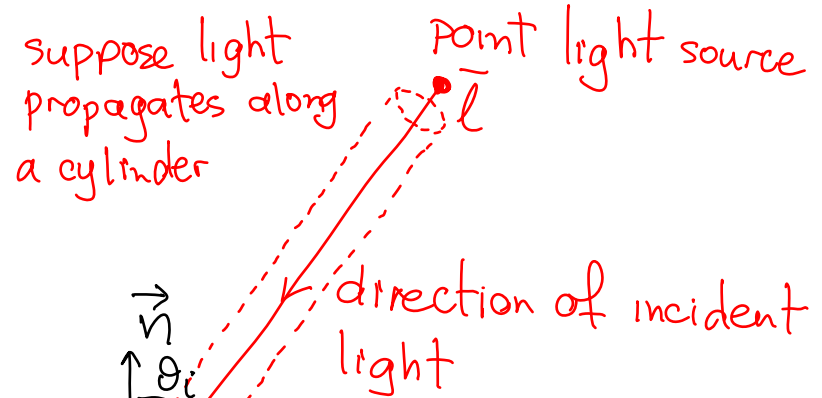 suppose light
propagates along
a cylinder
point light source
l̄
direction of incident
light
n⃗
θi